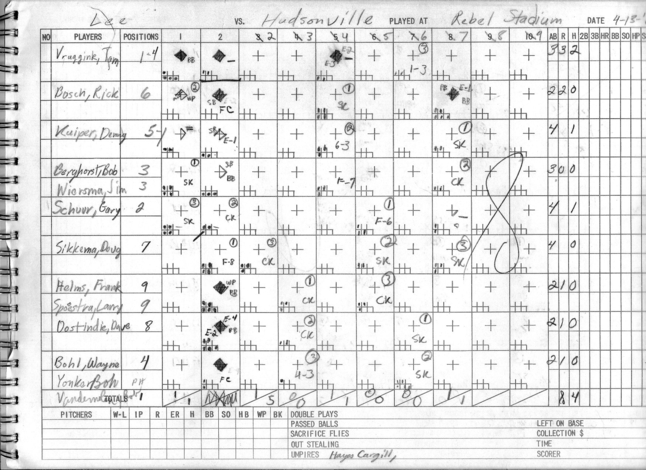 Lee VS. Hudsonville PLAYED AT Rebel Stadium DATE 4-13-
NO PLAYERS POSITIONS 1 2 3 4 5 6 7 8 9 10 AB R H 2B 3B HR BB SO HP S
Vruggink, Tom 1-4 BB E-2 E-3 3 1-3 3 3 2
Bosch, Rick 6 2 WP SB FC 1 SK E-1 BB 2 2 0
Kuiper, Denny 5-1 E-1 2 6-3 1 SK 4 1
Berghorst, Bob 3 1 SK SB BB 2 CK 3 0 0
Wiersma, Jim 3 F-7
Schuur, Gary 2 3 SK 2 CK 1 F-6 4 1
Sikkema, Doug 7 1 F-8 2 CK 2 SK 3 SK 4 0
Holms, Frank 9 WP BB 1 CK 3 CK 2 1 0
Spoestra, Larry 9
Oostindie, Dave 8 E-4 E-2 BB 2 CK 1 SK 2 1 0
Bohl, Wayne 4 FC 3 4-3 2 SK 2 1 0
Yonker, Bob PH
TOTALS 8 4
PITCHERS W-L IP R ER H BB SO HB WP BK DOUBLE PLAYS
PASSED BALLS
SACRIFICE FLIES LEFT ON BASE
OUT STEALING COLLECTION $
TIME
UMPIRES Hayes Cargill, SCORER